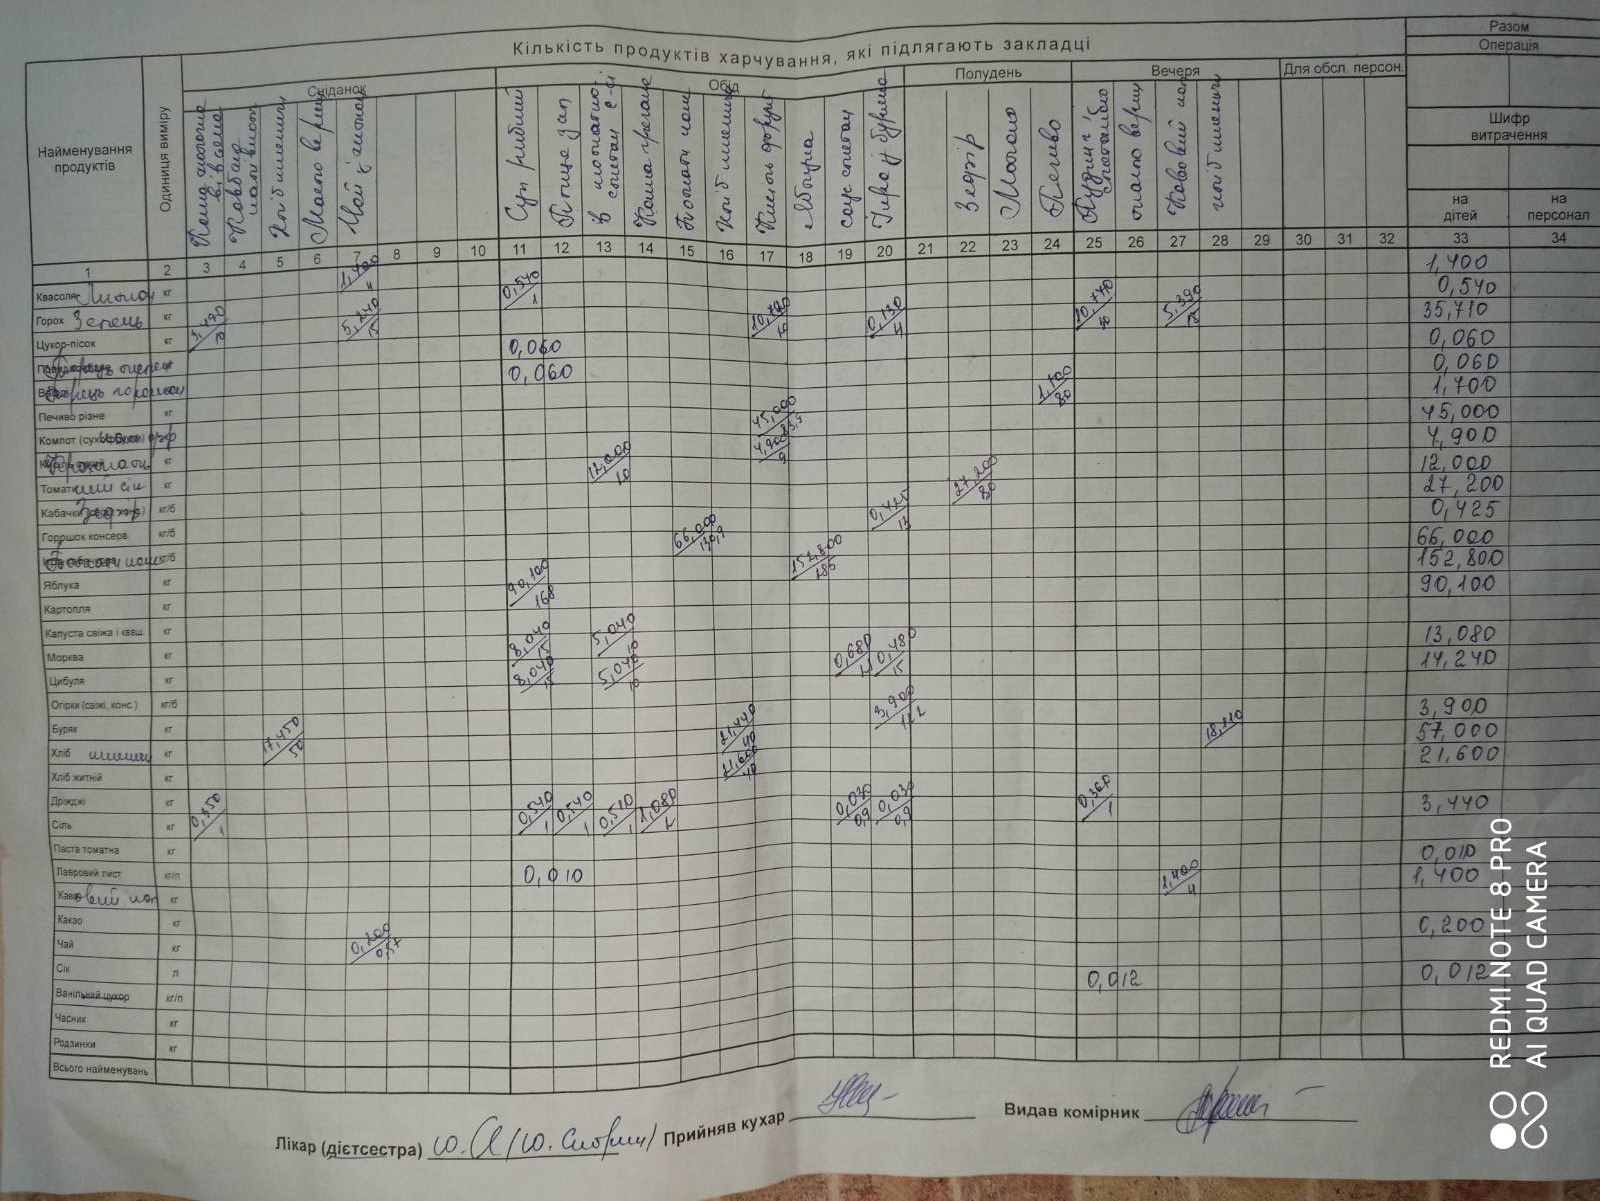 Кількість продуктів харчування, які підлягають закладці
Разом
Операція
Найменування продуктів
Одиниця виміру
Сніданок
Обід
Полудень
Вечеря
Для обсл. персон.
Шифр витрачення
на дітей
на персонал
Каша молочна вівсяна
Ковбаса
Хліб пшеничн
Масло верш
Чай з лимоном
Суп рибний
Птиця зап
Каша гречана
Хліб пшенич
Яблука
соус сметан
Ікра з буряка
Зефір
Молоко
Печиво
масло верш
Кавовий нап
хліб пшеничн
1 2 3 4 5 6 7 8 9 10 11 12 13 14 15 16 17 18 19 20 21 22 23 24 25 26 27 28 29 30 31 32 33 34
1,400 4 1,400
Квасоля Лимон кг 0,540 1 0,540
Горох Зелень кг 1,490 10 5,240 15 10,790 10 0,130 4 10,770 5,390 15 35,710
Цукор-пісок кг 0,060 0,060
кг 0,060 0,060
Перець горошком кг 1,700 80 1,700
Печиво різне кг 45,000 45,000
Компот (сухофрукти) кг 4,900 9 4,900
кг 12,000 10 12,000
Томатний сік кг 27,200 80 27,200
Кабачки Зефір кг/б 0,425 13 0,425
Горошок консерв. кг/б 66,000 66,000
кг/б 152,800 185 152,800
Яблука кг 90,100 168 90,100
Картопля кг
Капуста свіжа і кваш. кг 8,040 15 5,040 10 13,080
Морква кг 8,040 15 5,040 10 0,680 0,480 15 14,240
Цибуля кг
Огірки (свіжі, конс.) кг/б 3,900 3,900
Буряк кг 17,450 50 21,440 40 18,110 57,000
Хліб пшенич кг 21,600 40 21,600
Хліб житній кг
Дріжджі кг 0,350 1 0,540 1 0,540 1 0,510 1 1,080 0,030 0,9 0,030 0,9 0,360 1 3,440
Сіль кг
Паста томатна кг 0,010
Лавровий лист кг/п 0,010 1,400 4 1,400
Кавовий нап кг
Какао кг 0,200
Чай кг 0,200 0,57
Сік л 0,012 0,012
Ванільний цукор кг/п
Часник кг
Родзинки кг
Всього найменувань
Лікар (дієтсестра)
Прийняв кухар
Видав комірник
REDMI NOTE 8 PRO
AI QUAD CAMERA